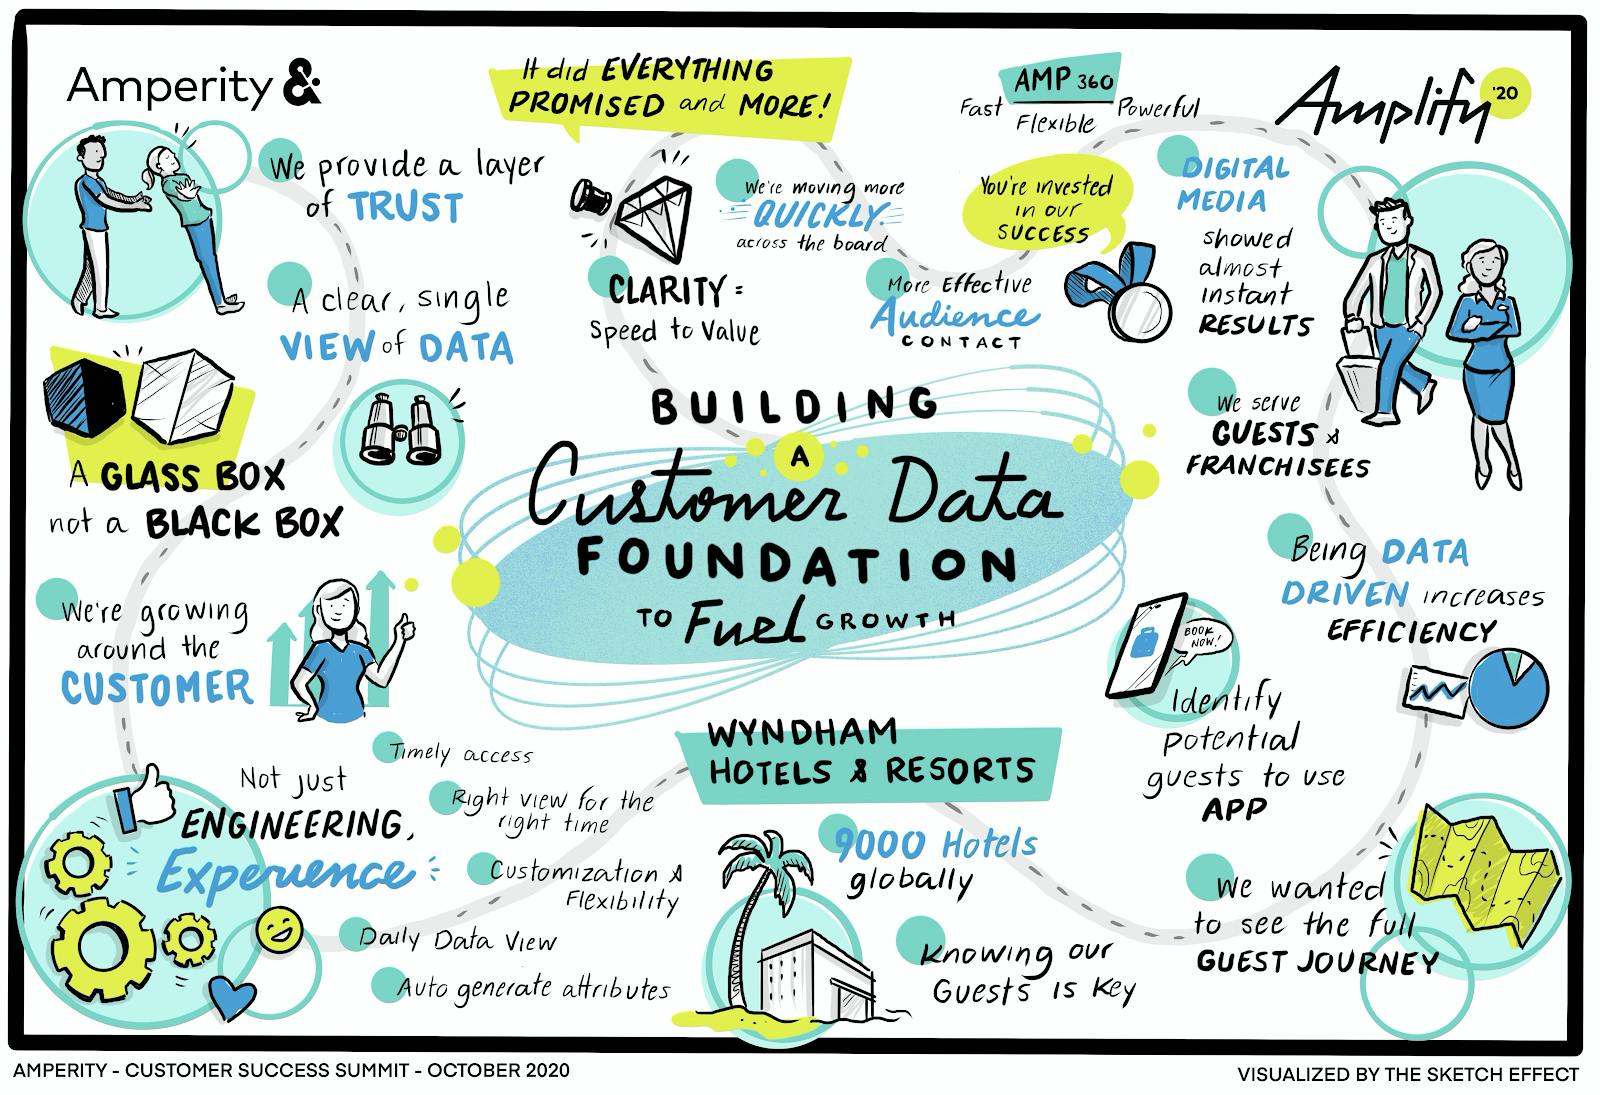 Amperity &
It did EVERYTHING
PROMISED and MORE!
AMP 360
Fast
Flexible
Powerful
Amplify '20
We provide a layer
of TRUST
A clear, single
VIEW of DATA
A GLASS BOX
not a BLACK BOX
We're growing
around the
CUSTOMER
CLARITY =
Speed to Value
We're moving more
QUICKLY
across the board
You're invested
in our
SUCCESS
More Effective
Audience
CONTACT
DIGITAL
MEDIA
showed
almost
instant
RESULTS
We serve
GUESTS &
FRANCHISEES
BUILDING
A
Customer Data
FOUNDATION
TO Fuel GROWTH
Being DATA
DRIVEN increases
EFFICIENCY
BOOK
NOW!
Identify
potential
guests to use
APP
Not just
ENGINEERING,
Experience
Timely access
Right view for the
right time
Customization &
Flexibility
Daily Data View
Auto generate attributes
WYNDHAM
HOTELS & RESORTS
9000 Hotels
globally
Knowing our
Guests is Key
We wanted
to see the full
GUEST JOURNEY
AMPERITY - CUSTOMER SUCCESS SUMMIT - OCTOBER 2020
VISUALIZED BY THE SKETCH EFFECT